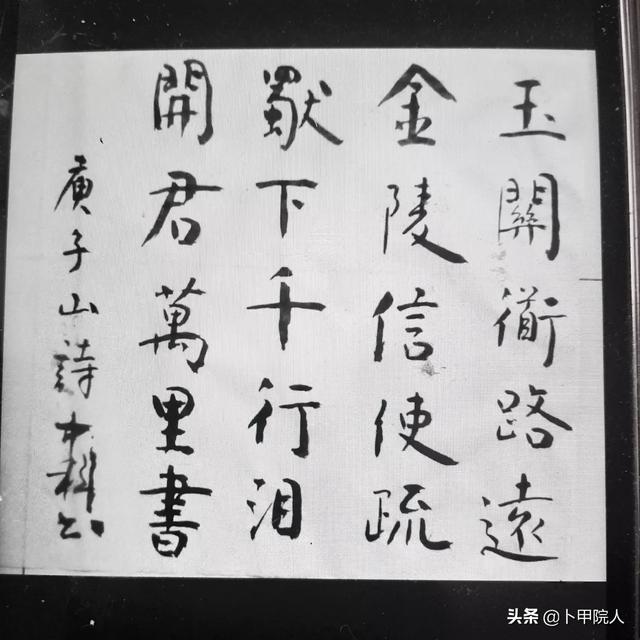 玉關衜路遠
金陵信使疏
獨下千行泪
開君萬里書
庾子山詩
头条 @卜甲院人